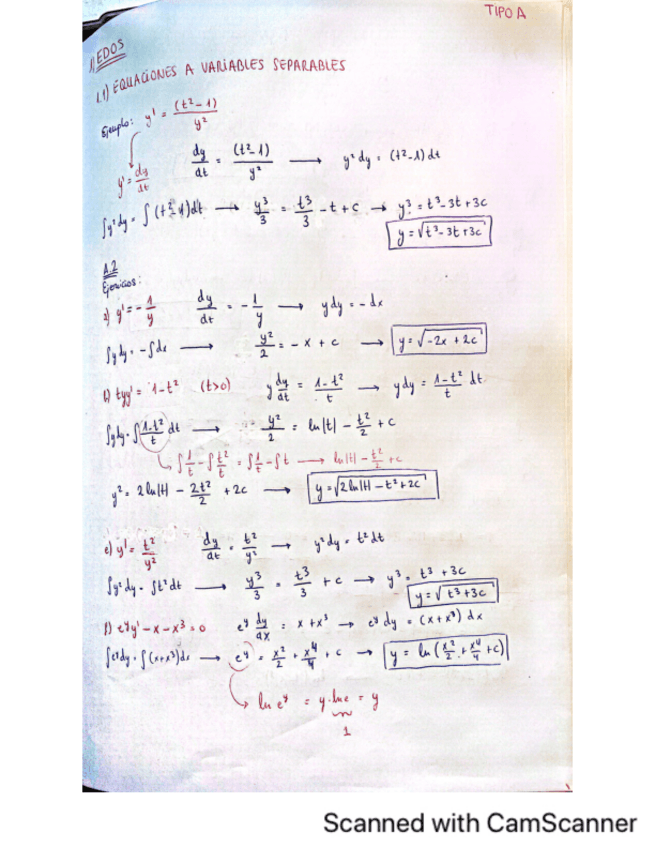 TIPO A
1) EDOS
1.1) EQUACIONES A VARIABLES SEPARABLES
Ejemplo: y' = (t²-1)/y²
y' = dy/dt
dy/dt = (t²-1)/y² → y²dy = (t²-1)dt
∫y²dy = ∫(t²-1)dt → y³/3 = t³/3 - t + c → y³ = t³-3t+3c
y = √t³-3t+3c
A.2
Ejercicios:
a) y' = -1/y dy/dt = -1/y → ydy = -dx
∫ydy = -∫dx → y²/2 = -x + c → y = √-2x+2c
b) tyy' = 1-t² (t>0) y dy/dt = 1-t²/t → ydy = 1-t²/t dt
∫ydy = ∫1-t²/t dt → y²/2 = ln|t| - t²/2 + c
∫1/t - ∫t²/t = ∫1/t - ∫t → ln|t| - t²/2 + c
y² = 2ln|t| - 2t²/2 + 2c → y = √2ln|t| - t² + 2c
e) y' = t²/y² dy/dt = t²/y² → y²dy = t²dt
∫y²dy = ∫t²dt → y³/3 = t³/3 + c → y³ = t³ + 3c
y = √t³+3c
f) e^y y' - x - x³ = 0 e^y dy/dx = x + x³ → e^y dy = (x+x³)dx
∫e^y dy = ∫(x+x³)dx → e^y = x²/2 + x⁴/4 + c → y = ln(x²/2 + x⁴/4 + c)
ln e^y = y·lne = y
1
Scanned with CamScanner